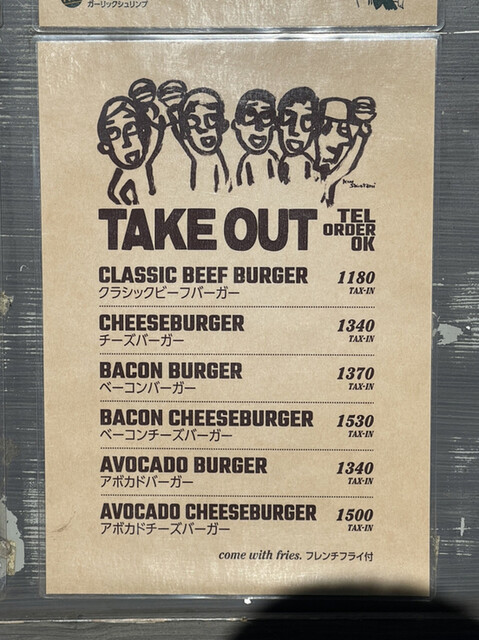 ガーリックシュリンプ
TAKE OUT
TEL
ORDER
OK
CLASSIC BEEF BURGER 1180
クラシックビーフバーガー TAX-IN
CHEESEBURGER 1340
チーズバーガー TAX-IN
BACON BURGER 1370
ベーコンバーガー TAX-IN
BACON CHEESEBURGER 1530
ベーコンチーズバーガー TAX-IN
AVOCADO BURGER 1340
アボカドバーガー TAX-IN
AVOCADO CHEESEBURGER 1500
アボカドチーズバーガー TAX-IN
come with fries. フレンチフライ付